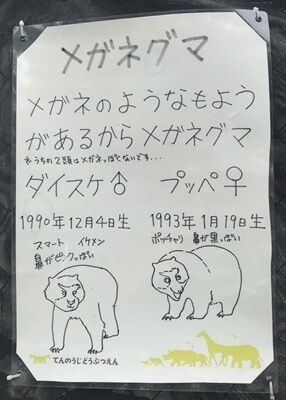 メガネグマ
メガネのようなもよう
があるからメガネグマ
※うちの2頭はメガネっぽくないです…
ダイスケ♂ プッペ♀
1990年12月4日生 1993年1月19日生
スマート イケメン ポッチャリ 鼻が黒っぽい
鼻がピンクっぽい
てんのうじどうぶつえん